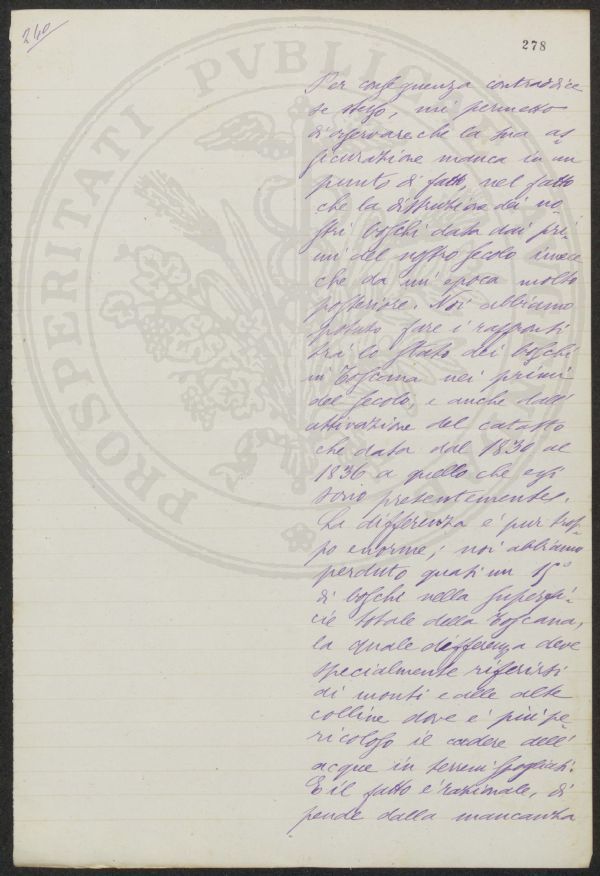 240
278
PROSPERITATI PVBLICAE
Per conseguenza contraddice
se stesso, mi permetto
di osservare che la sua as
sicurazione manca in un
punto di fatto, nel fatto
che la distruzione dei no
stri boschi data dai pri
mi del nostro secolo invece
che da un'epoca molto
posteriore. Noi abbiamo
potuto fare i rapporti
tra lo stato dei boschi
in Toscana nei primi
del secolo, e anche dall'
attivazione del catasto
che data dal 1830 al
1836 a quello che essi
sono presentemente.
La differenza è pur trop
po enorme; noi abbiamo
perduto quasi un 15º
di boschi nella superfi-
cie totale della Toscana,
la quale differenza deve
specialmente riferirsi
di monti e alle alte
colline dove è più pe
ricoloso il cadere dell'
acque in terreni spogliati.
E il fatto è razionale, di
pende dalla mancanza